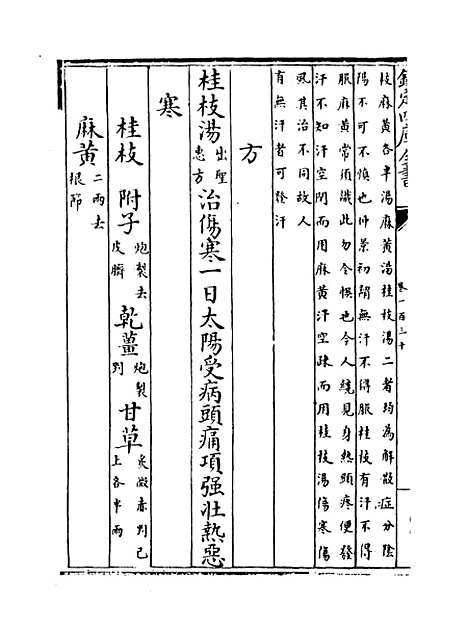 欽定四庫全書
卷一百三十
枝麻黄各半湯麻黄湯桂枝湯二者均為解散症分陰
陽不可不慎也仲景初謂無汗不得服桂枝有汗不得
服麻黄常須識此勿令悞也今人纔見身熱頭疼便發
汗不知汗空閉而用麻黄汗空疎而用桂枝湯傷寒傷
風其治不同故人
有無汗者可發汗
方
桂枝湯出聖惠方治傷寒一日太陽受病頭痛項强壯熱惡
寒
桂枝 附子炮製去皮臍 乾薑炮製剉 甘草炙微赤剉已上各半兩
麻黄二兩去根節